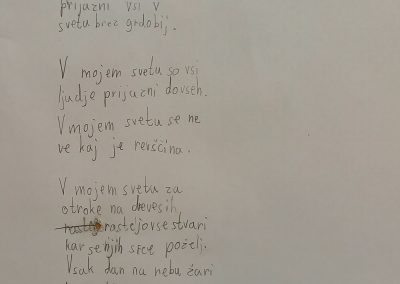 prijazni vsi v
svetu brez grdobij.
V mojem svetu so vsi
ljudje prijazni dovseh.
V mojem svetu se ne
ve kaj je revščina.
V mojem svetu za
otroke na drevesih,
rastejo vse stvari
kar se njih srce poželi.
Vsak dan na nebu žari